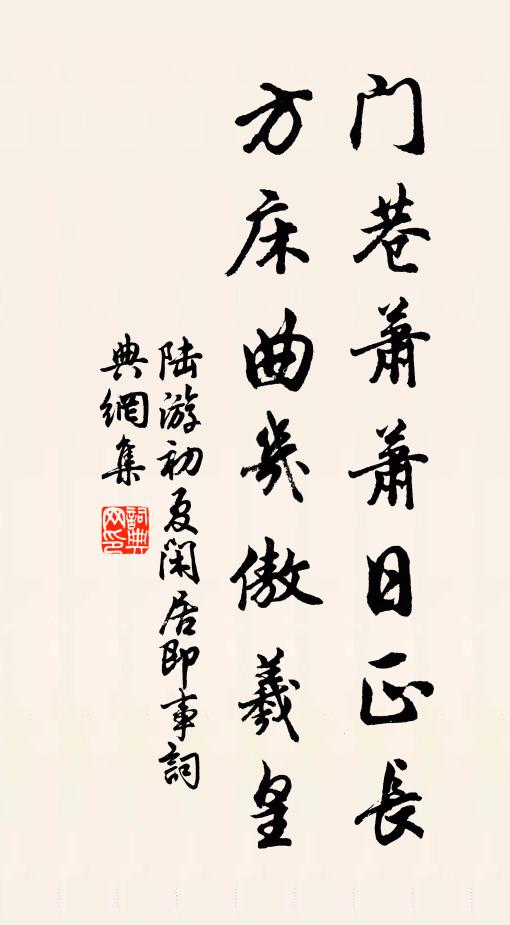 门巷萧萧日正長
方床曲幾傲羲皇
陆游初夏閑居即事詞
典網集
詞典网印